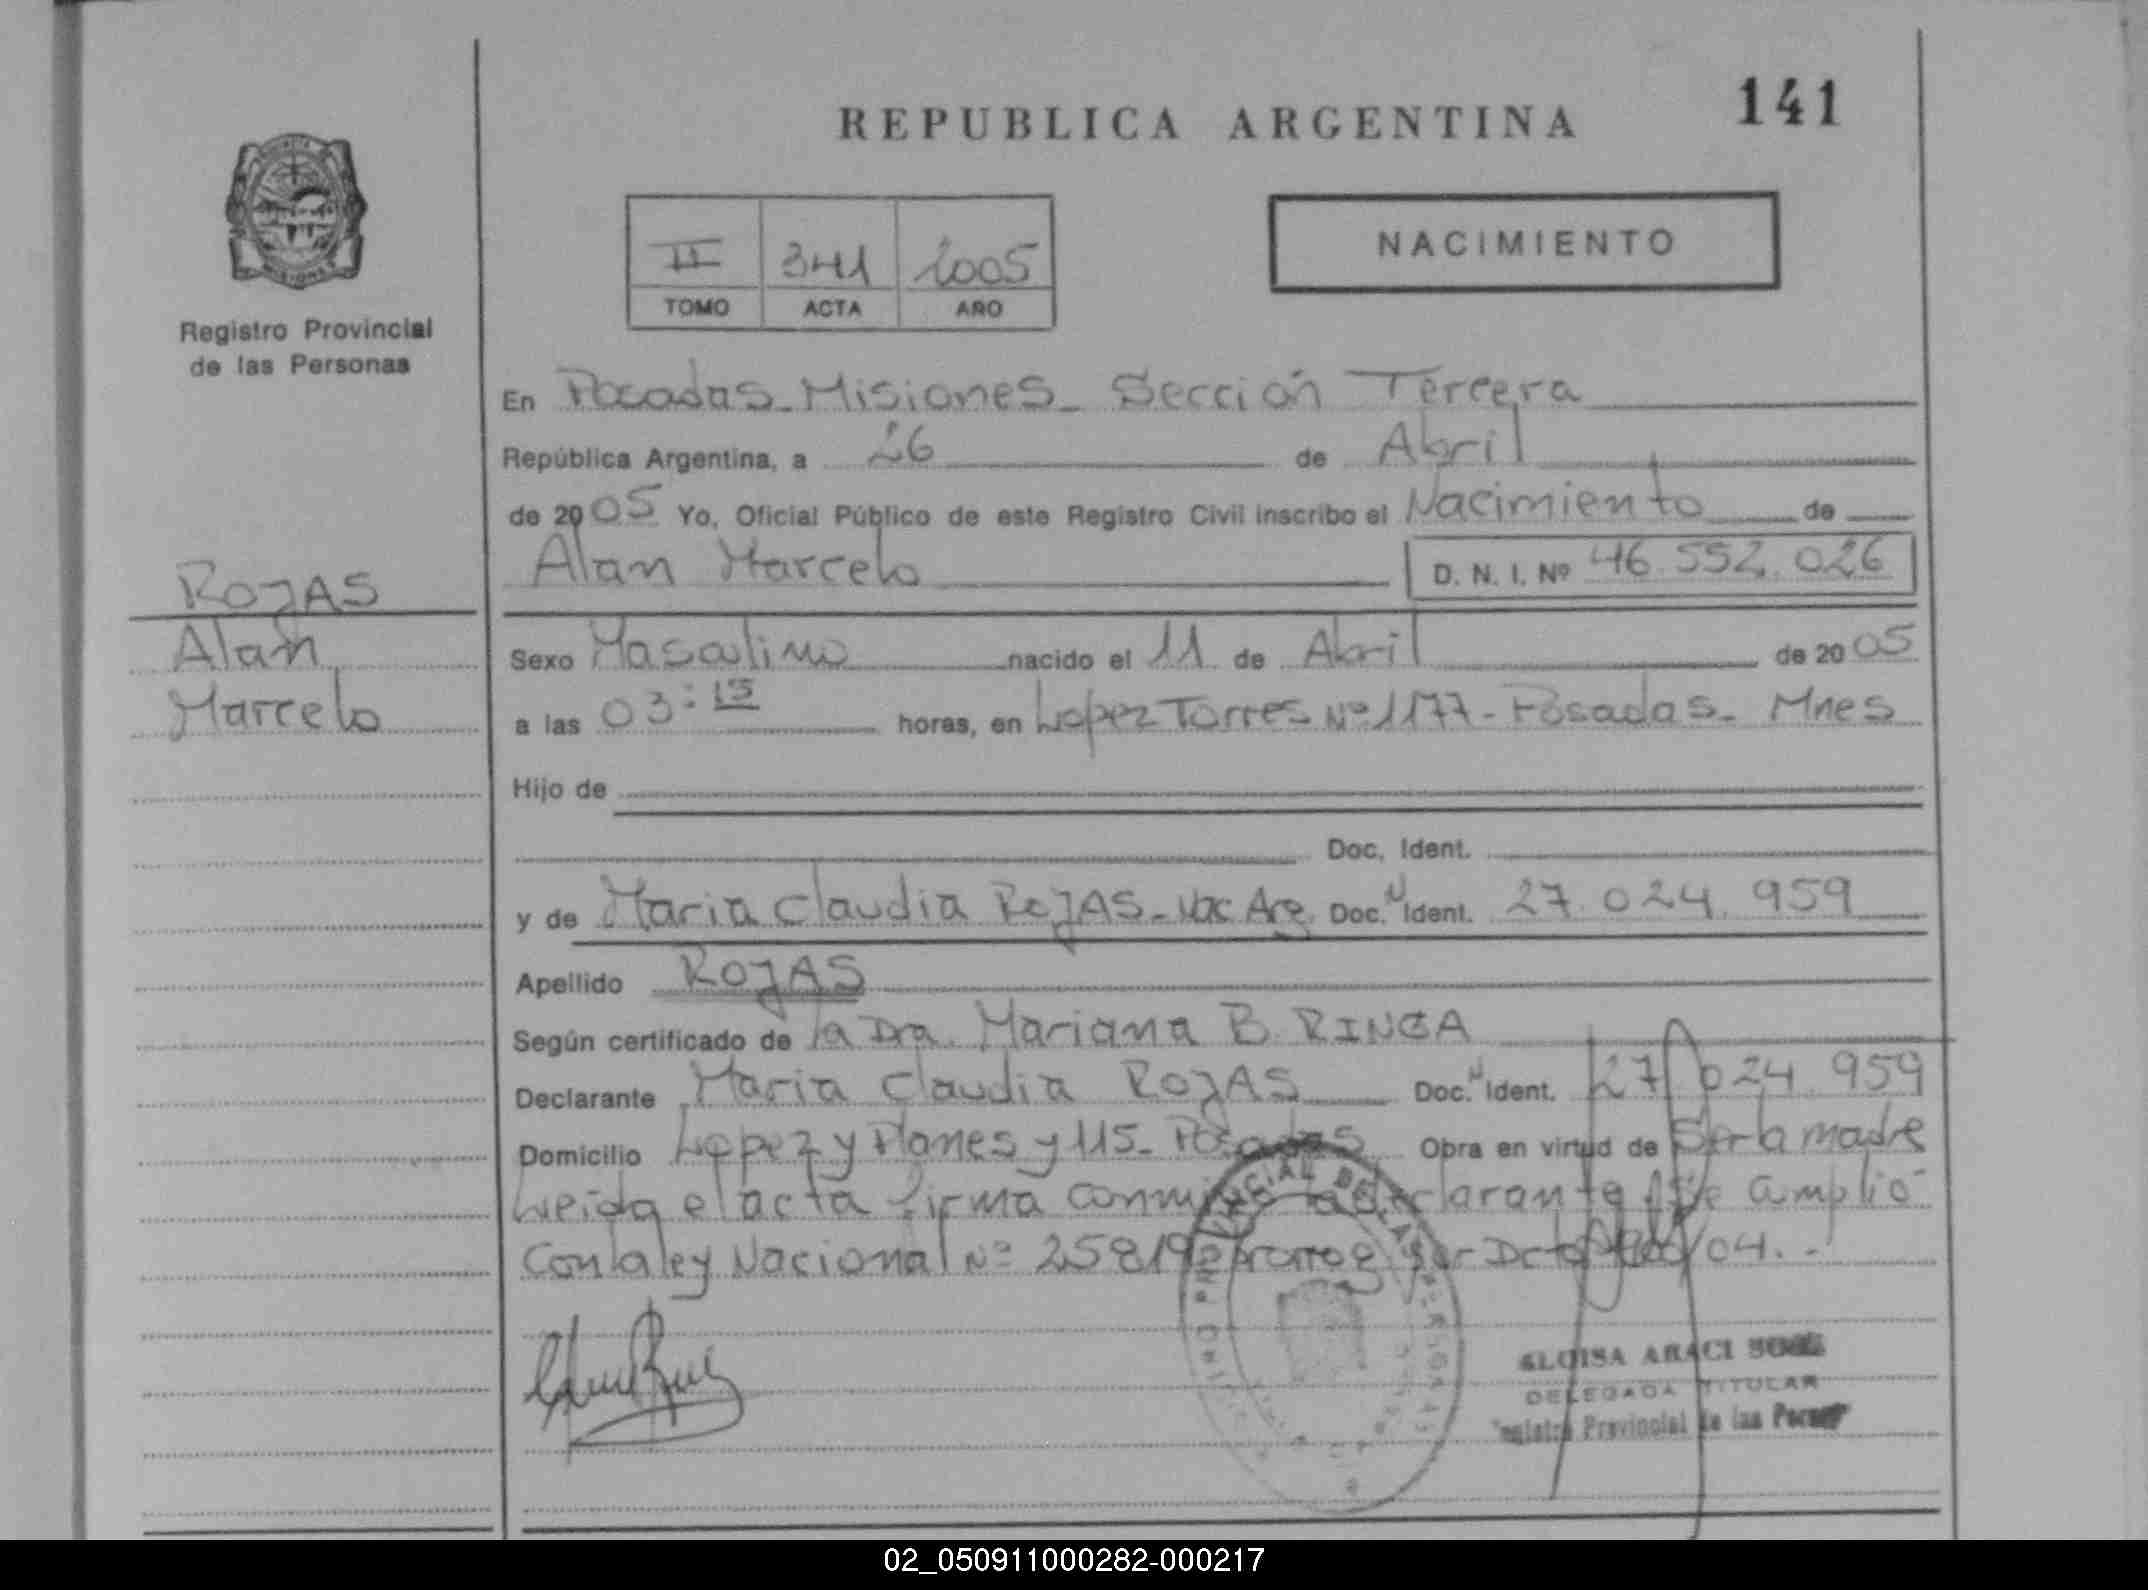 REPUBLICA ARGENTINA
141
II 341 2005
TOMO ACTA AÑO
NACIMIENTO
Registro Provincial
de las Personas
En Posadas - Misiones - Sección Tercera
República Argentina, a 26 de Abril
de 2005 Yo, Oficial Público de este Registro Civil inscribo el Nacimiento de
Alan Marcelo D. N. I. Nº 46.552.026
ROJAS
Alan
Marcelo
Sexo Masculino nacido el 11 de Abril de 2005
a las 03:15 horas, en Lopez Torres Nº 1177 - Posadas - Mnes
Hijo de
Doc. Ident.
y de Maria Claudia ROJAS - Nac Arg. Doc. N Ident. 27.024.959
Apellido ROJAS
Según certificado de la Dra. Mariana B. RINGA
Declarante Maria Claudia ROJAS Doc. N Ident. 27.024.959
Domicilio Lopez y Planes y 115 - Posadas Obra en virtud de Ser la madre
Leida el acta firma conmigo la declarante Se cumplio
Con la ley Nacional Nº 25819 prorrog por Dcto /04.-
PROVINCIAL DE LAS PERSONAS
ELOISA ARACI
DELEGADA TITULAR
Registro Provincial de las Personas
02_050911000282-000217